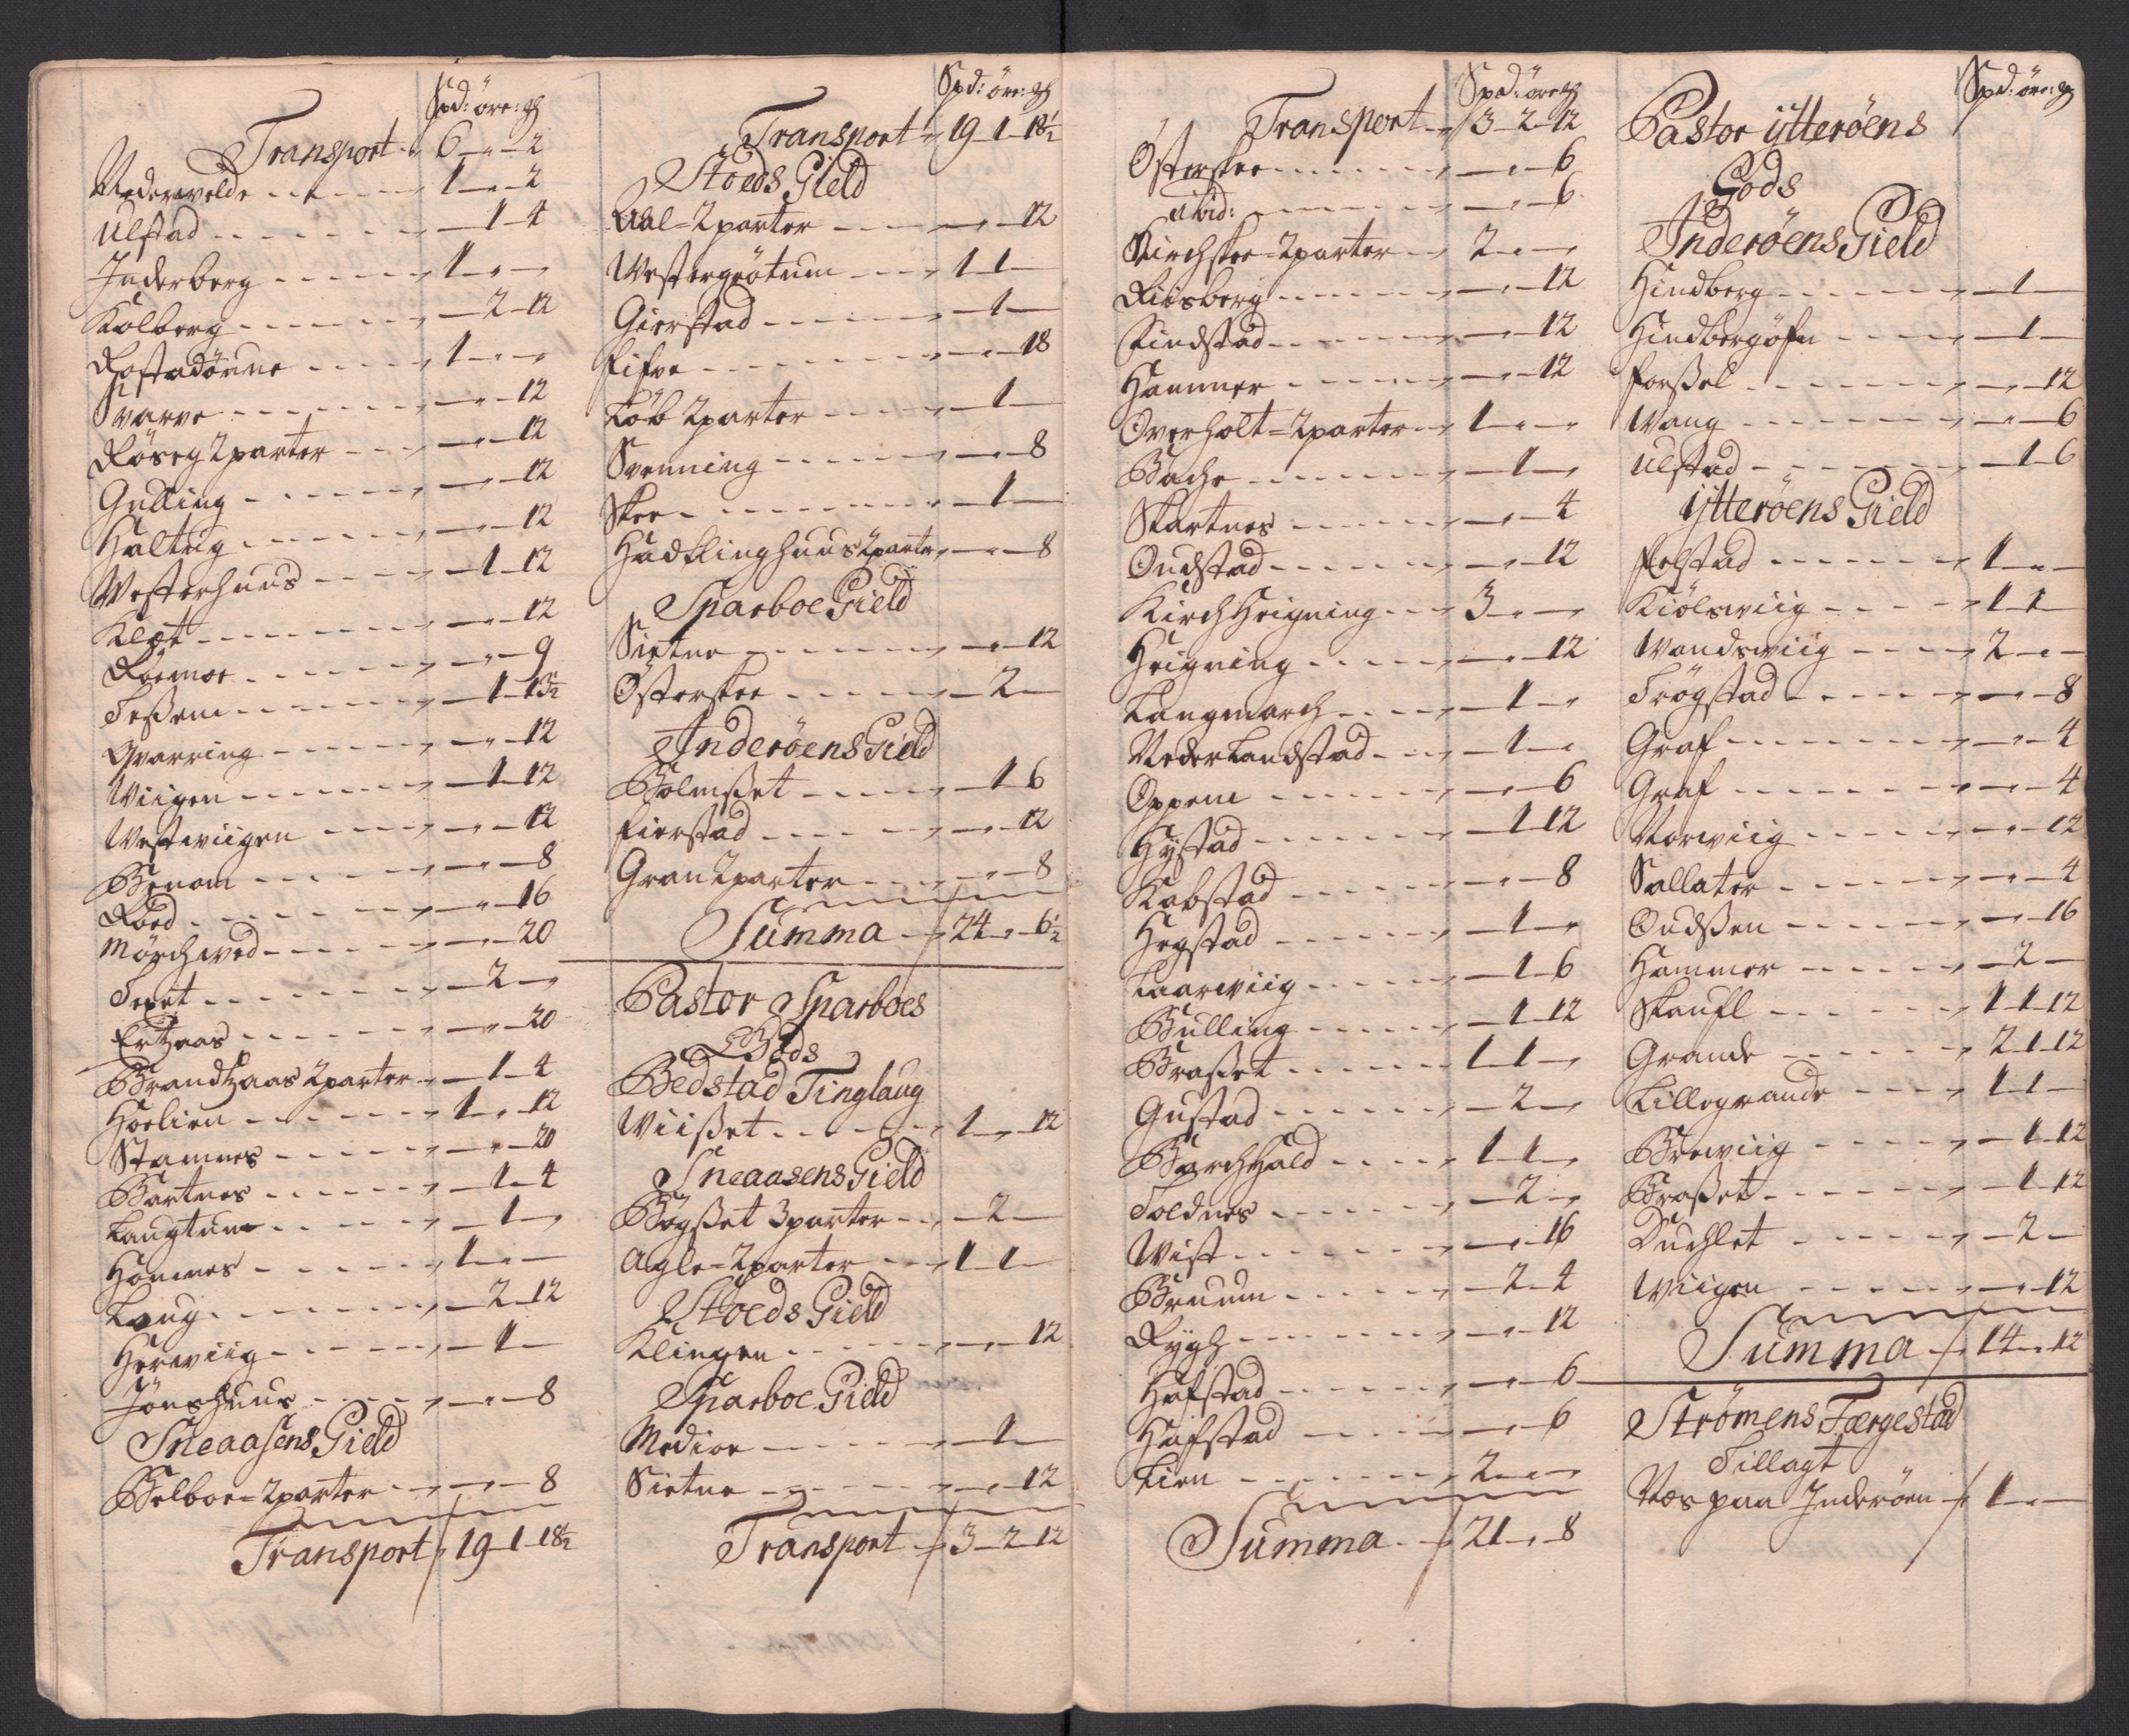 Spd: öre: ₰
Transport „ 6 – „ – 2
Nedervelde 1 – „ – 2
Ulstad – 1 – 4
Inderberg 1 – „ –
Kolberg – 2 – 12
Rostadönne 1 – „ –
Svarve – „ – 12
Röseg 2parter – „ – 12
Gulling – „ – 12
Haltug – „ – 12
Westerhuus – 1 – 12
Klæt – „ – 12
Röemoe – „ – 9
Tessem – 1 – 13½
Qvarring – „ – 12
Wiigen – 1 – 12
Westwiigen – „ – 12
Benom – „ – 8
Röed – „ – 16
Mörchwed – „ – 20
Texet – 2 –
Ertzaas – „ – 20
Brandtzaas 2parter – 1 – 4
Hoelien 1 – „ – 12
Stamnes – „ – 20
Bartnes – 1 – 4
Langtum – 1 –
Homnes 1 – „ –
Laug – 2 – 12
Herwiig – 1 –
Jönshuus – „ – 8
Sneaasens Gield
Belboe = 2parter – „ – 8
Transport 19 – 1 – 18½
Spd: öre: ₰
Transport „ 19 – 1 – 18½
Stoeds Gield
Aal = 2parter – „ – 12
Westergrötum 1 – 1 –
Gierstad – 1 –
Fifve – „ – 18
Løb 2parter – 1 –
Svenning – „ – 8
Skee – 1 –
Hadklinghuus 2parter – „ – 8
Sparboe Gield
Sietne – „ – 12
Österskee – 2 –
Inderöens Gield
Bolmsset – 1 – 6
Fierstad – „ – 12
Gran 2parter – „ – 8
Summa – 24 – „ – 6½
Pastor Sparboes
Gods
Bedstad Tinglaug
Wiisset 1 – „ – 12
Sneaasens Gield
Bögsset 3parter – 2 –
Agle = 2parter 1 – 1 –
Stoeds Gield
Klingen – „ – 12
Sparboe Gield
Medioe – 1 –
Sietne – „ – 12
Transport 3 – 2 – 12
Spd: öre ₰
Transport „ 3 – 2 – 12
Österskee – „ – 6
ibid: – „ – 6
Kirchskee = 2parter 2 – „ –
Riisberg – „ – 12
Findstad – „ – 12
Hammer – „ – 12
Overholt = 2parter 1 – „ –
Bache – 1 –
Skartnes – „ – 4
Oudstad – „ – 12
Kirch Heigning 3 – „ –
Heigning – „ – 12
Langmarch – 1 –
Nederlandstad – 1 –
Oppem – „ – 6
Hystad – 1 – 12
Kabstad – „ – 8
Hegstad – 1 –
Laarwiig – 1 – 6
Bulling – 1 – 12
Brasset 1 – 1 –
Gustad – 2 –
Barchhald 1 – 1 –
Toldnes – 2 –
Wist – „ – 16
Bruum – 2 – 4
Rygh – „ – 12
Hafstad – „ – 6
Hafstad – „ – 6
Lien 2 – „ –
Summa 21 – „ – 8
Spd: öre: ₰
Pastor Ytteröens
Gods
Inderöens Gield
Hindberg – 1 –
Hindbergöfn – 1 –
Forssel – „ – 12
Wang – „ – 6
Ulstad – 1 – 6
Ytteröens Gield
Felstad 1 – „ –
Kiölswiig 1 – 1 –
Wandswiig 2 – „ –
Trögstad – „ – 8
Graf – „ – 4
Graf – „ – 4
Norwiig – „ – 12
Sallater – „ – 4
Oudssen – „ – 16
Hammer – 2 –
Skaufl 1 – 1 – 12
Grande 2 – 1 – 12
Lillegrande 1 – 1 –
Brewiig – 1 – 12
Brasset – 1 – 12
Duehlet – 2 –
Wiigen – „ – 12
Summa 14 – „ – 12
Strömens Færgestad
Tillagt
Næs paa Inderöen 1 – „ –